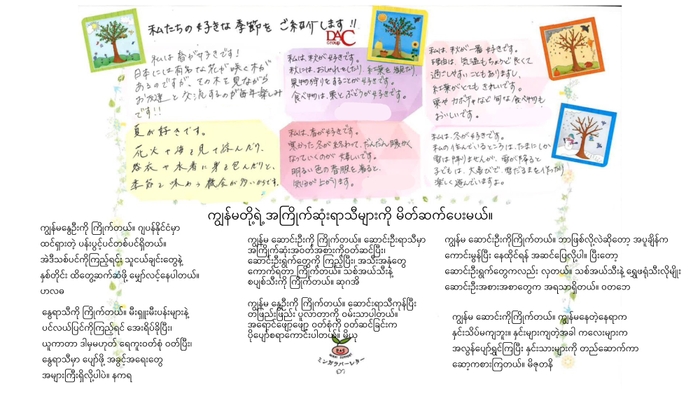 私たちの好きな季節をご紹介します!!
DAC
Group
私は春が好きです!
日本には有名な花が咲く木が
あるのですが、その木を見ながら
お友達と交流するのが毎年楽しみ
です!!
私は、秋が好きです。
秋には、おしゃれをしたり、紅葉を眺めたり、
果物狩りをすることが好きです。
食べ物は、栗とぶどうが好きです。
私は秋が一番好きです。
理由は、気温もちょうど良くて
過ごしやすいこともありますし、
紅葉がとてもきれいです。
栗やカボチャなど旬な食べ物も
おいしいです。
夏が好きです。
花火や海を見て
浴衣や水着に身を包んだりと、
季節を味わう機会が多いからです。
私は、春が好きです。
寒かった冬が終わって、だんだん暖かく
なっていくのが嬉しいです。
明るい色の春服を着ると、
気分が上がります。
私は、冬が好きです。
私の住んでいるところは、たまにしか
雪は降りませんが、雪が降ると
子どもは、大喜びで雪だるまを作ったり
楽しく遊んでいますよ。
ကျွန်မတို့ရဲ့အကြိုက်ဆုံးရာသီများကို မိတ်ဆက်ပေးမယ်။
ကျွန်မနွေဦးကို ကြိုက်တယ်။ ဂျပန်နိုင်ငံမှာ
ထင်ရှားတဲ့ ပန်းပွင့်ပင်တစ်ပင်ရှိတယ်။
အဲဒီသစ်ပင်ကိုကြည့်ရင်း သူငယ်ချင်းတွေနဲ့
နှစ်တိုင်း ထိတွေ့ဆက်ဆံဖို့ မျှော်လင့်နေပါတယ်။
ဟလဓ
နွေရာသီကို ကြိုက်တယ်။ မီးရှူးမီးပန်းများနဲ့
ပင်လယ်ပြင်ကိုကြည့်ရင် အေးရိပ်ခိုပြီး၊
ယူကာတာ ဒါမှမဟုတ် ရေကူးဝတ်စုံ ဝတ်ပြီး၊
နွေရာသီမှာ ပျော်ဖို့ အခွင့်အရေးတွေ
အများကြီးရှိလို့ပါပဲ။ နကရ
ကျွန်မ ဆောင်းဦးကို ကြိုက်တယ်။ ဆောင်းဦးရာသီမှာ
အကြိုက်ဆုံးအဝတ်အစားကိုဝတ်ဆင်ပြီး၊
ဆောင်းဦးရွက်တွေကို ကြည့်ပြီး၊ အသီးအနှံတွေ
ကောက်ရတာ ကြိုက်တယ်။ သစ်အယ်သီးနဲ့
စပျစ်သီးကို ကြိုက်တယ်။ ဆုဂအိ
ကျွန်မ နွေဦးကို ကြိုက်တယ်။ ဆောင်းရာသီကုန်ပြီး
တဖြည်းဖြည်း ပူလာတာကို ဝမ်းသာပါတယ်။
အရောင်ဖျော့ဖျော့ ဝတ်စုံကို ဝတ်ဆင်ခြင်းက
ပိုပျော်စရာကောင်းပါတယ်။ မိယု
ကျွန်မ ဆောင်းဦးကိုကြိုက်တယ်။ ဘာဖြစ်လို့လဲဆိုတော့ အပူချိန်က
ကောင်းမွန်ပြီး နေထိုင်ရန် အဆင်ပြေလို့ပါ။ ပြီးတော့
ဆောင်းဦးရွက်တွေကလည်း လှတယ်။ သစ်အယ်သီးနဲ့ ရွှေဖရုံသီးလိုမျိုး
ဆောင်းဦးအစားအစာတွေက အရသာရှိတယ်။ ဝတဘေ
ကျွန်မ ဆောင်းကိုကြိုက်တယ်။ ကျွန်မနေတဲ့နေရာက
နှင်းသိပ်မကျဘူး။ နှင်းများကျတဲ့အခါ ကလေးများက
အလွန်ပျော်ရွှင်ကြပြီး နှင်းသားများကို တည်ဆောက်ကာ
ဆော့ကစားကြတယ်။ မိဇုတနိ
ミンガラバーレター